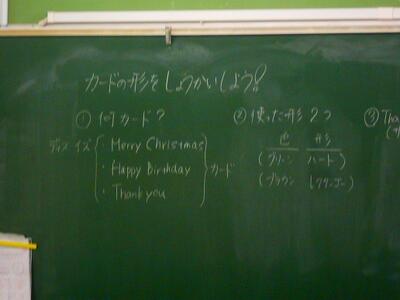 カードの形をしょうかいしよう!
① 何カード?
ディス イズ
・Merry Christmas
・Happy Birthday
・Thank you
カード
② 使った形 2つ
色 形
(グリーン ハート)
(ブラウン
③ Tha